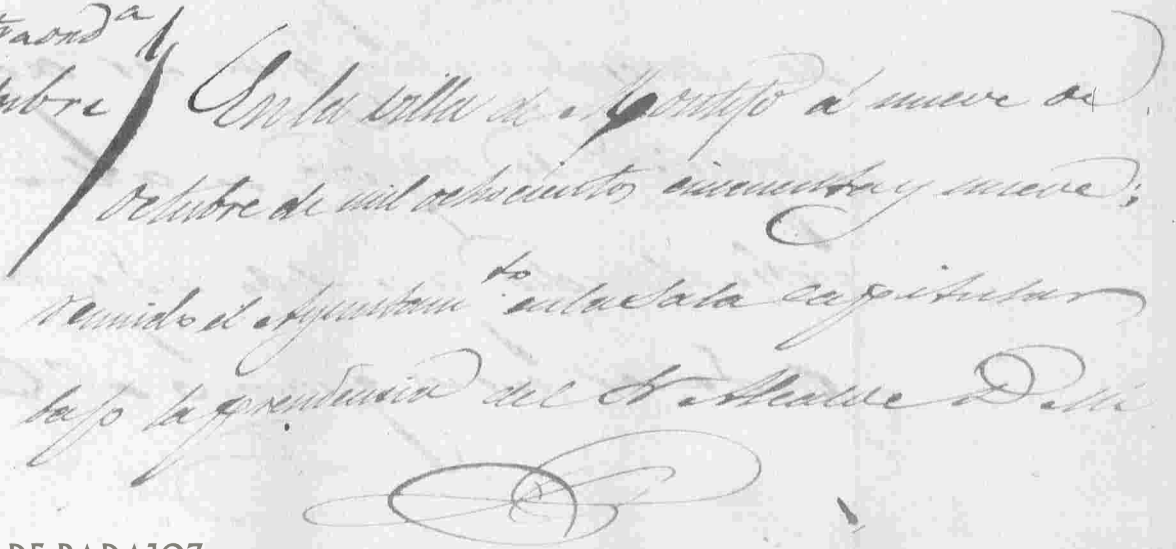 traord.ª
tubre
En la villa de Montijo á nueve de
octubre de mil ochocientos cincuenta y nueve;
reunido el Ayuntam.to en la Sala capitular
bajo la presidencia del Sr. Alcalde D. Mi
DE BADAJOZ